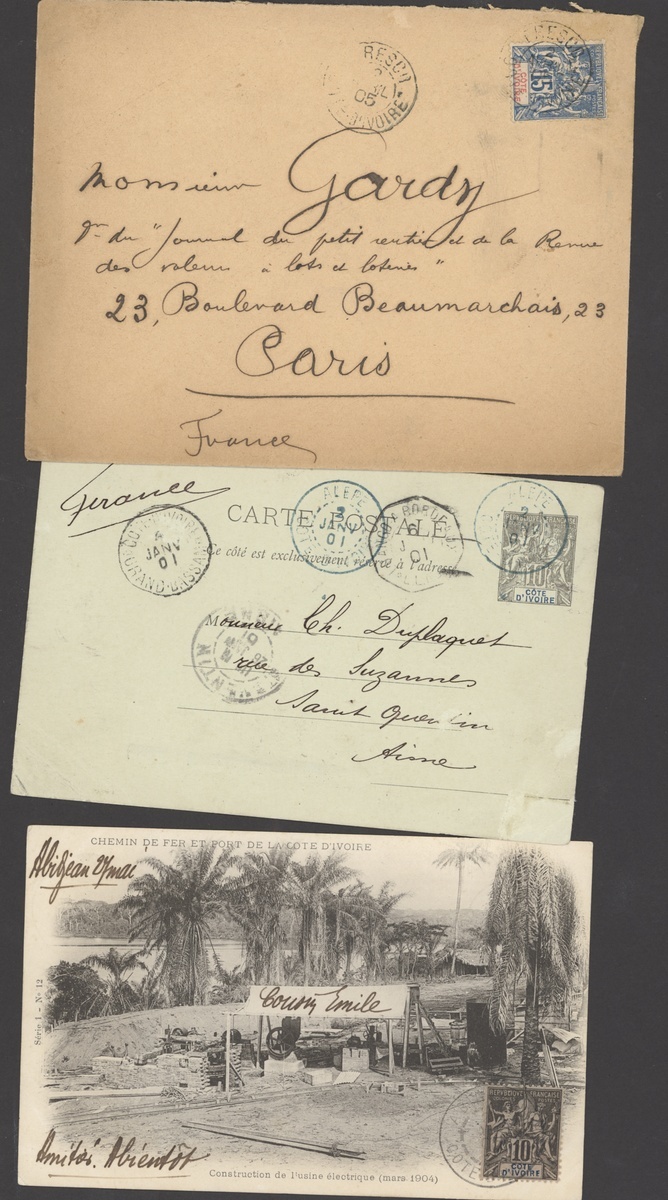 FRESCO
05
CÔTE D'IVOIRE
FRESCO
15
CÔTE D'IVOIRE
Monsieur Gardy
Dr du "Journal du petit rentier et de la Revue
des valeurs à lots et loteries"
23, Boulevard Beaumarchais, 23
Paris
France
France
CARTE POSTALE
Ce côté est exclusivement réservé à l'adresse
GRAND-BASSAM
JANV
01
ALEPE
2
JANV
01
BORDEAUX
6
01
ALEPE
2
01
10
CÔTE
D'IVOIRE
Monsieur Ch. Duplaquet
rue des Suzannes
Saint Quentin
Aisne
CHEMIN DE FER ET PORT DE LA COTE D'IVOIRE
Abidjean 27 mai
Série I - No 12
Cousin Emile
REPUBLIQUE FRANÇAISE
10
CÔTE
D'IVOIRE
Amitiés. Abientôt
Construction de l'usine électrique (mars 1904)